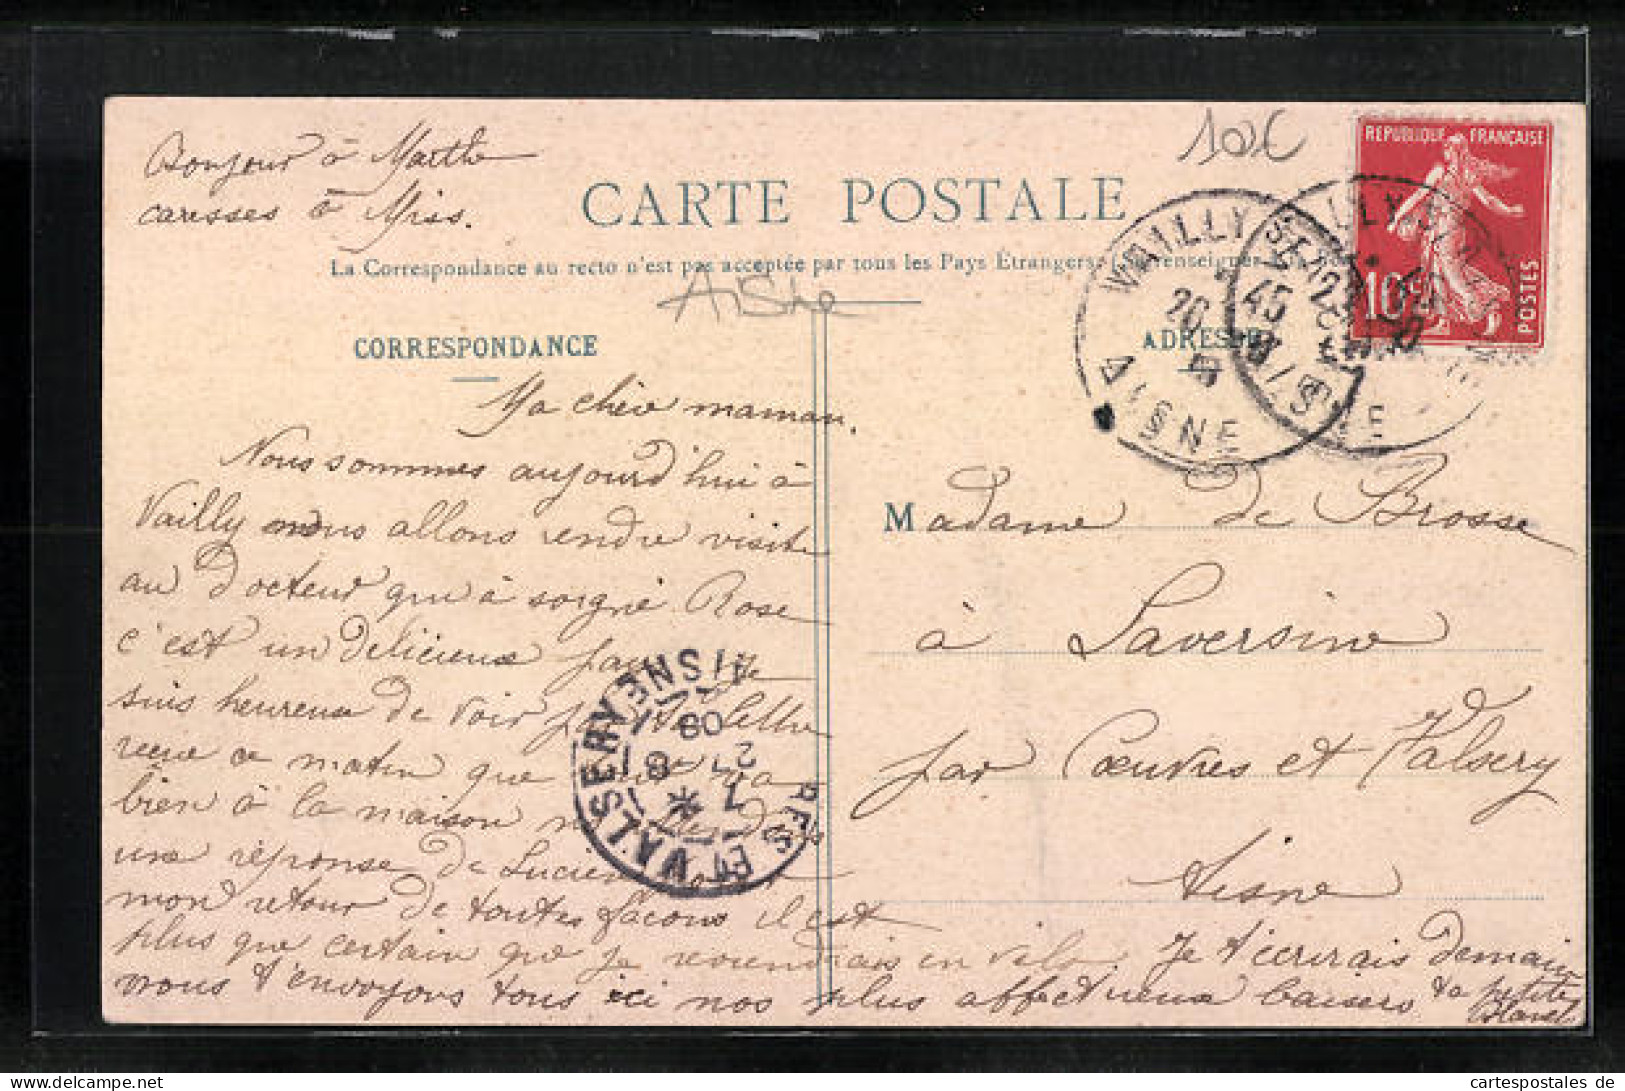 Bonjour à Marthe
caresses à Miss.
10€
REPUBLIQUE FRANÇAISE
10c
POSTES
CARTE POSTALE
La Correspondance au recto n'est pas acceptée par tous les Pays Étrangers
Aisne
CORRESPONDANCE
ADRESSE
VAILLY
AISNE
Ma chère maman.
Nous sommes aujourd'hui à
Vailly nous allons rendre visite
au Docteur qui à soigné Rose
c'est un délicieux
suis heureuse de voir lettre
reçue ce matin que va
bien à la maison
une réponse de Lucien
mon retour de toutes façons il est
plus que certain que je reviendrais en vélo
nous t'envoyons tous ici nos plus affectueux baisers
Je t'écrirais demain
ta petite
VALSERY AISNE
08
Madame de Brosse
à Laversine
par Cœuvres et Valsery
Aisne
cartespostales de
www.cartespostales.de